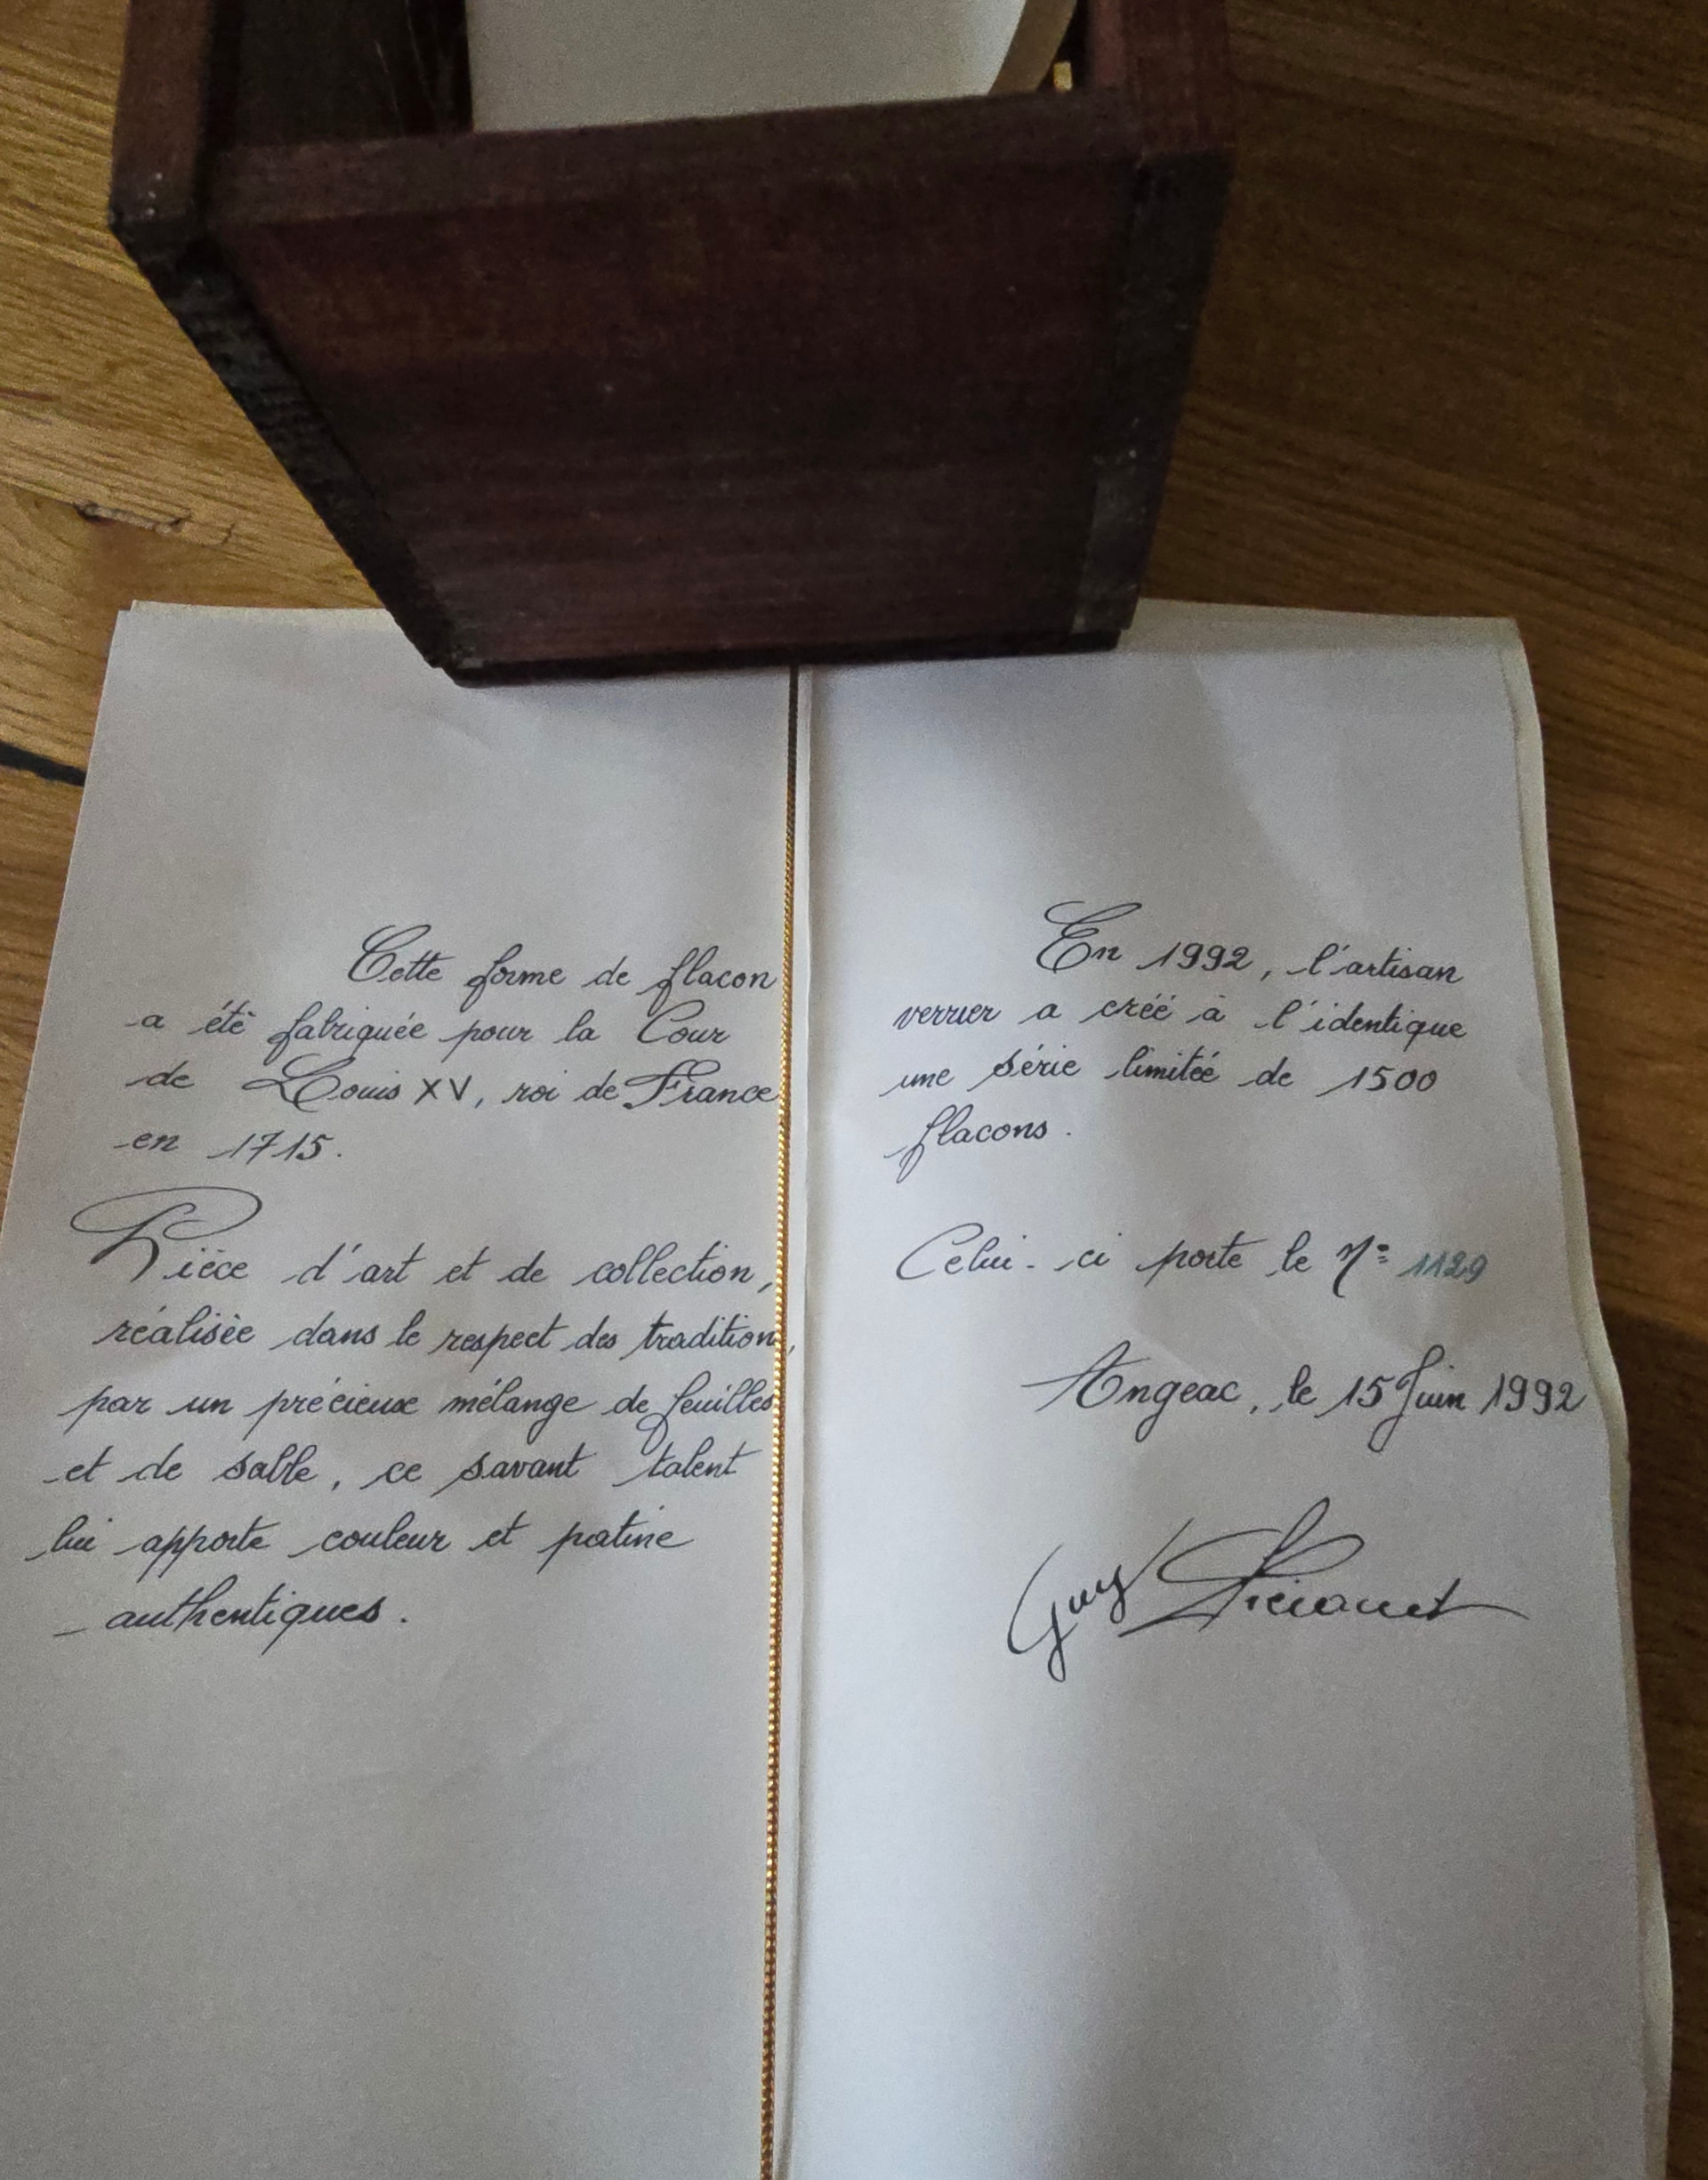 Cette forme de flacon
a été fabriquée pour la Cour
de Louis XV, roi de France
en 1715.
Pièce d'art et de collection,
réalisée dans le respect des tradition,
par un précieux mélange de feuilles
et de sable, ce savant talent
lui apporte couleur et patine
authentiques.
En 1992, l'artisan
verrier a créé à l'identique
une série limitée de 1500
flacons.
Celui-ci porte le N° 1129
Angeac, le 15 Juin 1992
Guy